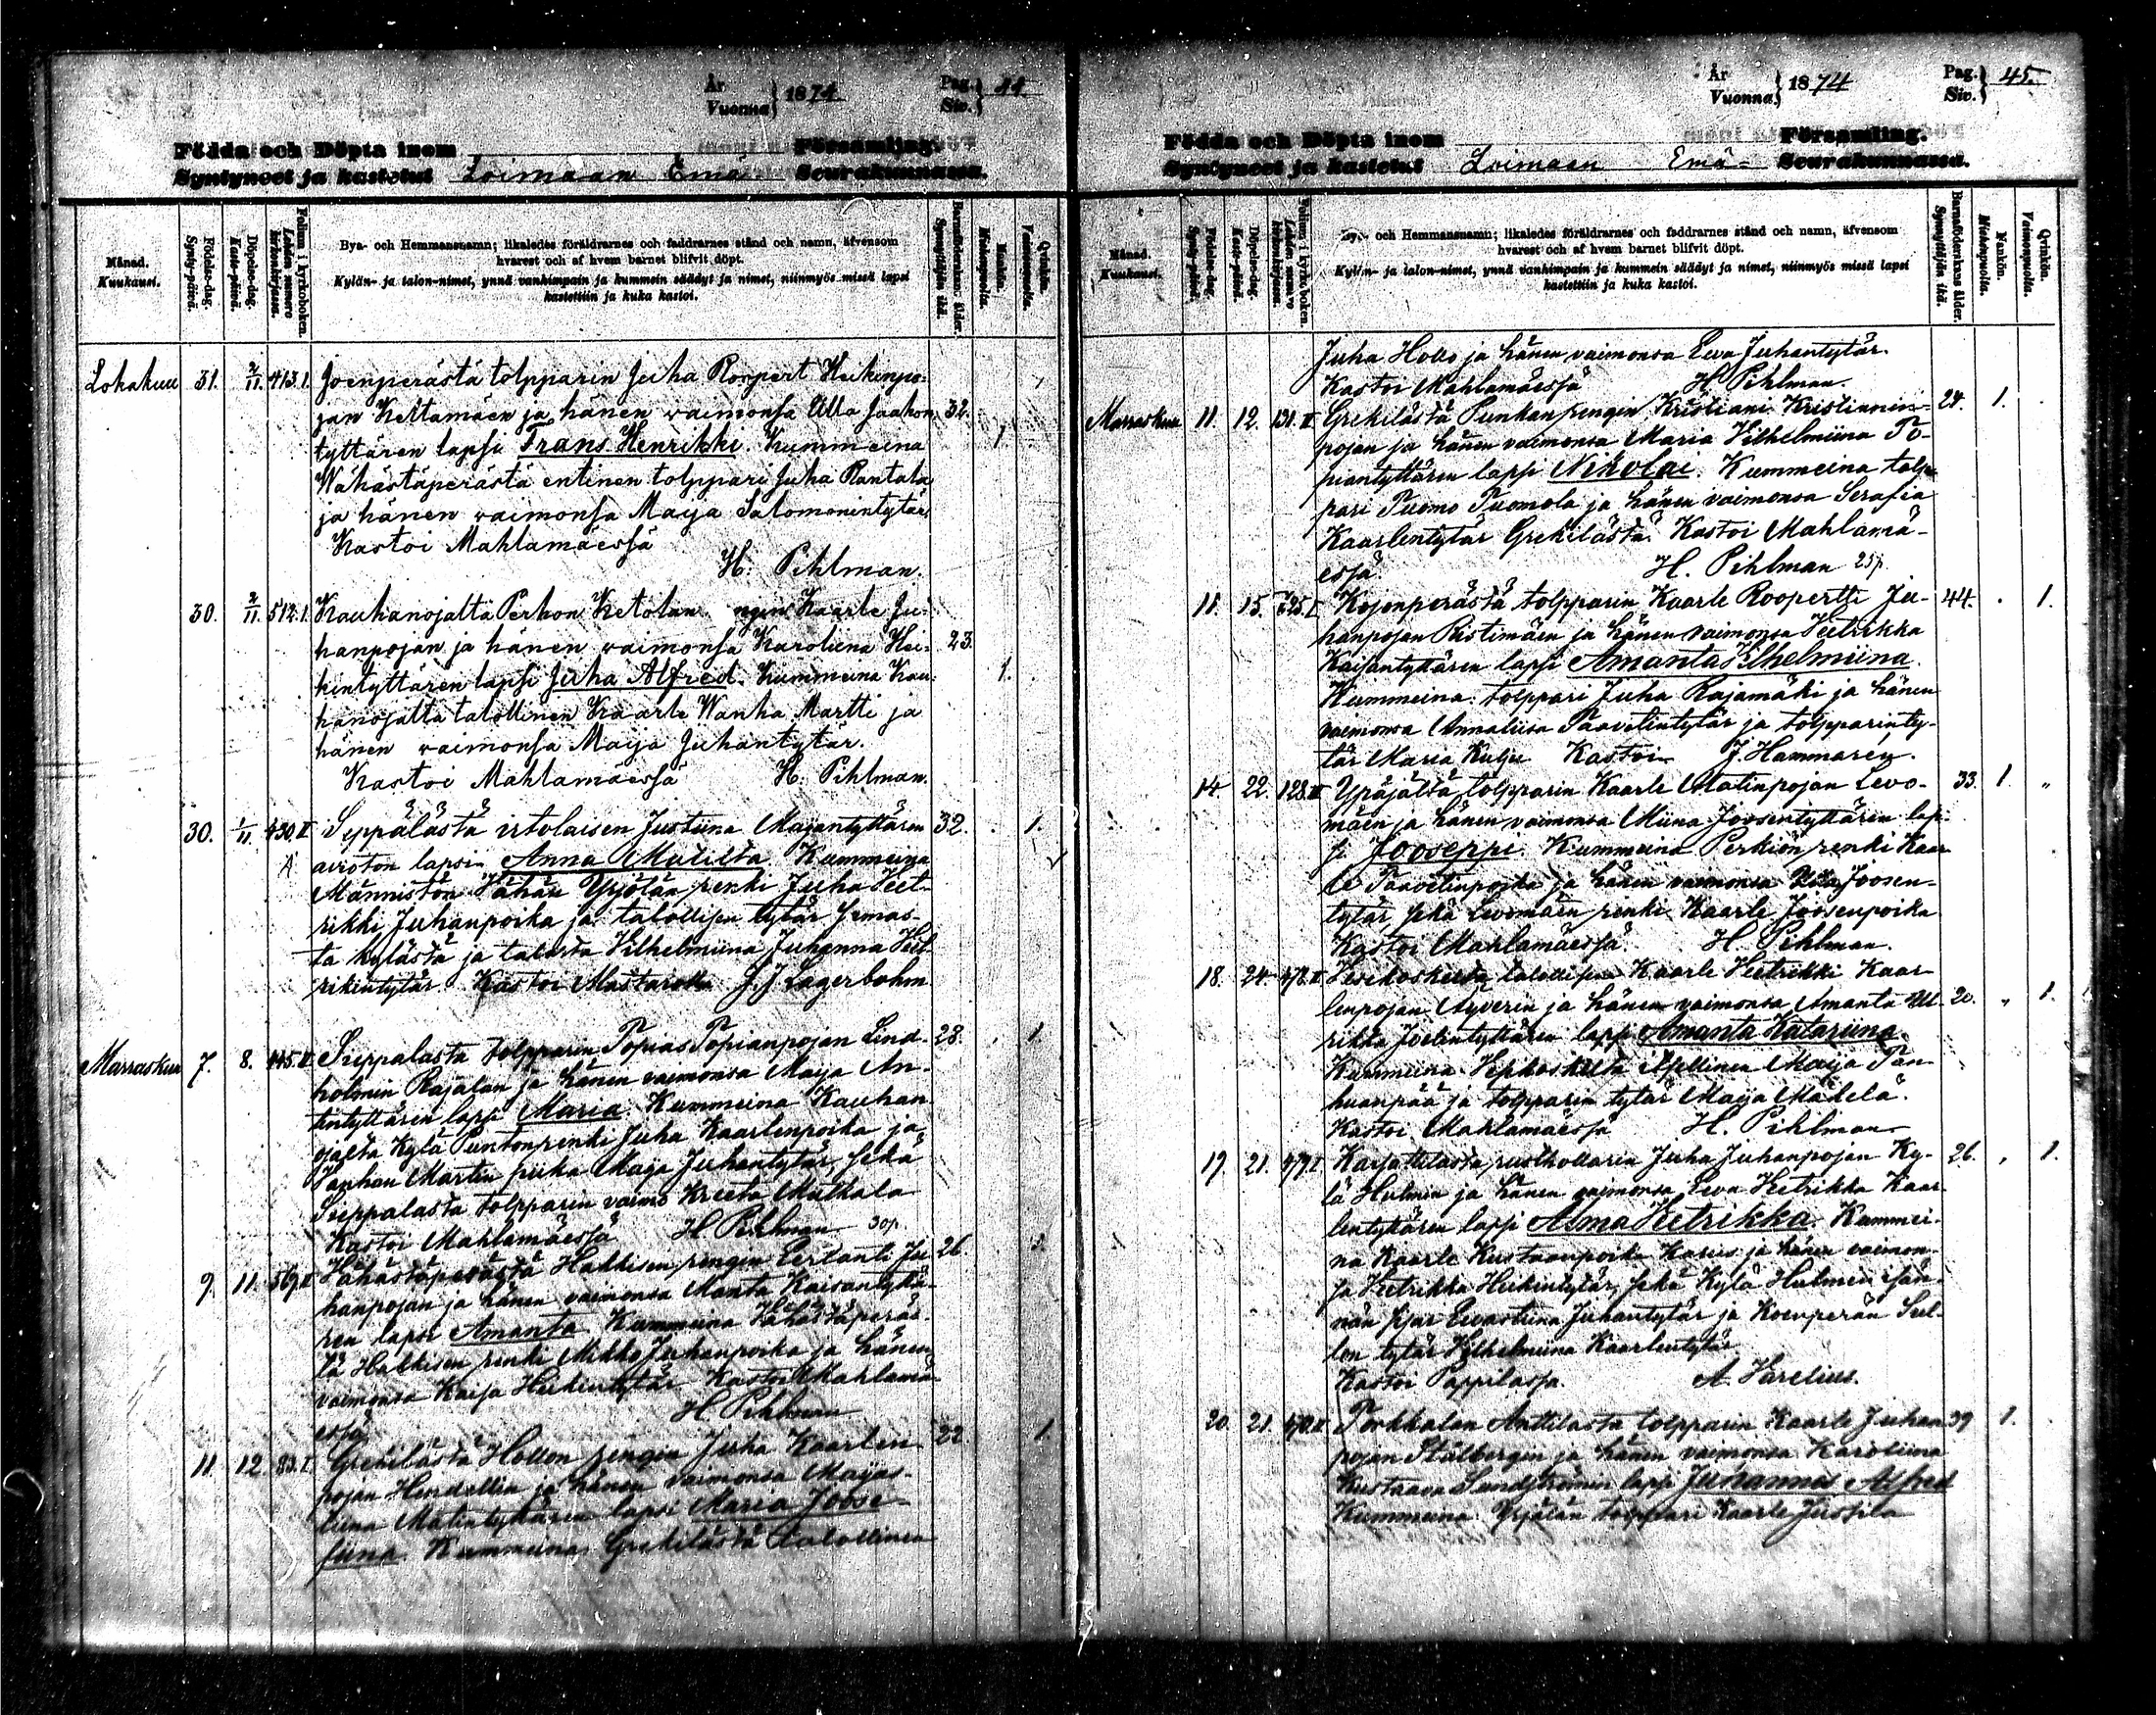 År
Vuonna 1874
Pag.
Siv. 44
Födda och Döpta inom Församling.
Syntyneet ja kastetut Loimaan Emä- Seurakunnassa.
Månad.
Kuukausi.
Födelse-dag.
Synty-päivä.
Döpelse-dag.
Kaste-päivä.
Folium i kyrkoboken.
Lehden numero kirkonkirjassa.
Bya- och Hemmansnamn; likaledes föräldrarnes och faddrarnes stånd och namn, äfvensom
hvarest och af hvem barnet blifvit döpt.
Kylän- ja talon-nimet, ynnä vanhimpain ja kummein säädyt ja nimet, niinmyös missä lapsi
kastettiin ja kuka kastoi.
Barnaföderskans ålder.
Synnyttäjän ikä.
Mankön.
Miehenpuolta.
Qvinkön.
Vaimonpuolta.
Lokakuu 31. 2/11. 413.I. Joenperästä tolpparin Juha Roopert Heikinpo-
jan Keltamäen ja hänen vaimonsa Ulla Jaakon 32.
tyttären lapsi Frans Henrikki. Kummeina 1
Wähästäperästä entinen tolppari Juha Rantala
ja hänen vaimonsa Maija Salomonintytär
Kastoi Mahlamäessä
H. Pihlman.
30. 2/11. 512.I. Kauhanojalta Perhon Ketolan Kaarle Ju-
hanpojan ja hänen vaimonsa Karoliina Hei- 23.
kintyttären lapsi Juha Alfred. Kummeina Kau- 1.
hanojalta talollinen Kaarle Wanha Martti ja
hänen vaimonsa Maija Juhantytär.
Kastoi Mahlamäessä H. Pihlman.
30. 1/11. 430 II Seppälästä itolaisen Justiina Maijantyttären 32. 1.
avioton lapsi Anna Matilta. Kummeina
Männistön Vähän Yrjölän renki Juha Veet-
rikki Juhanpoika ja talollisen tytär samas-
ta kylästä ja talosta Vilhelmiina Juhanna Veet
rikintytär. Kastoi J. J. Lagerbohm
Marraskuu 7. 8. 445.II Seppälästä tolpparin Topias Topianpojan Lind- 28. 1
holmin Rajalan ja hänen vaimonsa Maija An-
tintyttären lapsi Maria. Kummeina Kauhan
ojalta Kylä Puntonrenki Juha Kaarlenpoika ja
Vanhan Martin piika Maija Juhantytär, sekä
Seppälästä tolpparin vaimo Kreeta Matkala
Kastoi Mahlamäessä H Pihlman 30p.
9. 11. 569.II Vähästäperästä Hakkisen rengin Eertanti Ju 26
hanpojan ja hänen vaimonsa Manta Kaisantyttä-
ren lapsi Amanta Kummeina Vähästäperäs-
tä Hakkisen renki Mikko Juhanpoika ja hänen
vaimonsa Kaisa Heikintytär Kastoi Mahlamä-
essä H Pihlman
11. 12. 83.I. Grekilästä Hollon rengin Juha Kaarlen 22 1.
pojan Hendellin ja hänen vaimonsa Maijas-
tiina Matintyttären lapsi Maria Joose-
fiina. Kummeina Grekilästä talollinen
År
Vuonna 1874
Pag.
Siv. 45.
Födda och Döpta inom Församling.
Syntyneet ja kastetut Loimaan Emä- Seurakunnassa.
Månad.
Kuukausi.
Födelse-dag.
Synty-päivä.
Döpelse-dag.
Kaste-päivä.
Folium i kyrkoboken.
Lehden numero kirkonkirjassa.
Bya- och Hemmansnamn; likaledes föräldrarnes och faddrarnes stånd och namn, äfvensom
hvarest och af hvem barnet blifvit döpt.
Kylän- ja talon-nimet, ynnä vanhimpain ja kummein säädyt ja nimet, niinmyös missä lapsi
kastettiin ja kuka kastoi.
Barnaföderskans ålder.
Synnyttäjän ikä.
Mankön.
Miehenpuolta.
Qvinkön.
Vaimonpuolta.
Juha Hollo ja hänen vaimonsa Eeva Juhantytär.
Kastoi Mahlamäessä H Pihlman.
Marraskuu 11. 12. 131.II Grekilästä Punkan rengin Kristiani Kristianin- 24. 1.
pojan ja hänen vaimonsa Maria Vilhelmiina To-
piantyttären lapsi Nikolai. Kummeina tolp-
pari Tuomo Tuomola ja hänen vaimonsa Serafia
Kaarlentytär Grekilästä. Kastoi Mahlamä-
essä. H. Pihlman 25p.
11. 15. I Kojonperästä tolpparin Kaarle Roopertti Ju- 44. 1.
hanpojan Ristimäen ja hänen vaimonsa Veetrikka
Kaisantyttären lapsi Amanta Vilhelmiina.
Kummeina: tolppari Juha Rajamäki ja hänen
vaimonsa Annaliisa Paavelintytär ja tolpparinty-
tär Maria Kulju Kastoi J. Hammarén.
14. 22. 128.III Ypäjältä tolpparin Kaarle Matinpojan Levo- 33. 1. "
mäen ja hänen vaimonsa Miina Joosentyttären lap-
si Jooseppi. Kummeina Perkiön renki Kaar
le Paavelinpoika ja hänen vaimonsa Joosen-
tytär, sekä Levomäen renki Kaarle Joosenpoika
Kastoi Mahlamäessä. H. Pihlman.
18. 24. 478.II Vesikoskelta talollisen Kaarle Veetrikki Kaar
lenpojan Äyverin ja hänen vaimonsa Amanta Ul 20. " 1.
rikka Joelintyttären lapsi Amanta Katariina.
Kummeina Vesikoskelta itsellinen Maija Pen-
huanpää ja tolpparin tytär Maija Mäkelä.
Kastoi Mahlamäessä H. Pihlman
19. 21. 479.I Karsattilasta rusthollarin Juha Juhanpojan Ky- 26. " 1.
lä Hulmin ja hänen vaimonsa Eeva Veetrikka Kaar
lentyttären lapsi Alma Veetrikka. Kummei-
na Kaarle Kustaanpoika ja hänen vaimon-
sa Veetrikka Heikintytär, sekä Kylä Hulmin isän-
nän sisar Eevastiina Juhantytär ja Koenperän Sil-
lon tytär Vilhelmiina Kaarlentytär
Kastoi Pappilassa. A. Varelius.
20. 21. II Torkkalan Anttilasta tolpparin Kaarle Juhan 39 1.
pojan Stålbergin ja hänen vaimonsa Karoliina
Kustaava Sundströmin lapsi Juhannes Alfred
Kummeina: Yrjälän tolppari Kaarle Jussila